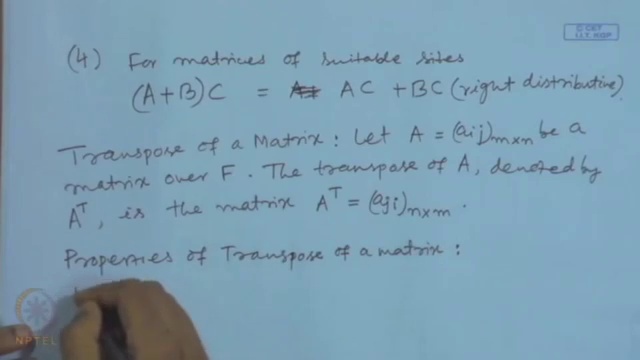 © CET
I.I.T. KGP
(4) For matrices of suitable sites
(A+B)C = AC + BC (right distributive)
Transpose of a Matrix: Let A = (aij)m×n be a
matrix over F. The transpose of A, denoted by
A^T, is the matrix A^T = (aji)n×m.
Properties of Transpose of a matrix:
NPTEL